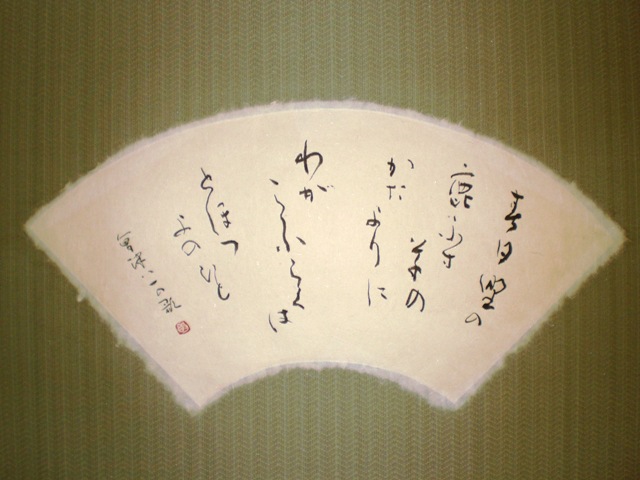 春日野の
鹿ふす
草の
かた
よりに
わが
こふらくは
とほつ
よのひと
會津八一の歌